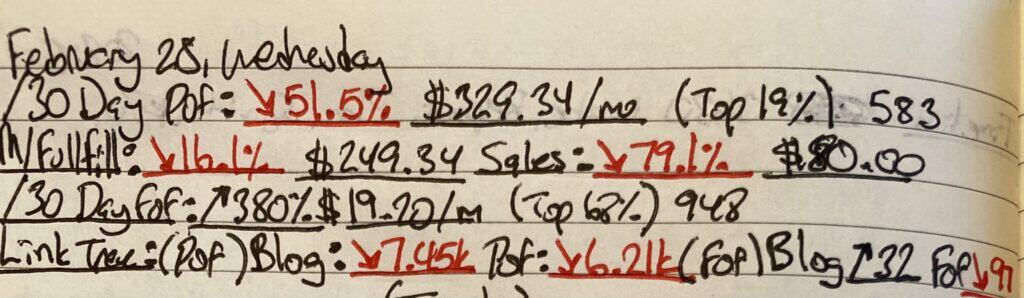 February 28, Wednesday
/30 Day Pof: ↘51.5% $329.34/mo (Top 19%) 583
M/Fullfill: ↘16.1% $249.34 Sales: ↘79.1% $80.00
/30 Day Fof: ↗380% $19.20/m (Top 68%) 948
Link Tree: (Pof) Blog: ↘7.45k Pof: ↘6.21k (Fof) Blog ↗32 Fof ↘97